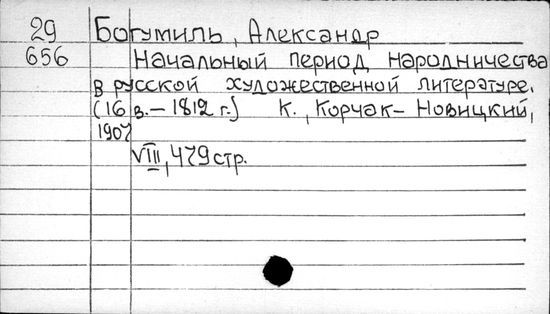 29 Богумиль, Александр
656 Начальный период народничества
в русской художественной литературе.
(16 в. – 1812 г.) К., Корчак-Новицкий,
1907
VIII, 479 стр.